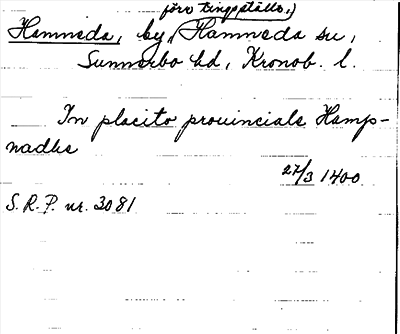 förr tingställe,)
Hamneda, by, Hamneda sn,
Sunnerbo hd, Kronob. l.
In placito prouinciale Hamp-
nadhe
27/3 1400
S.R.P. nr. 3081